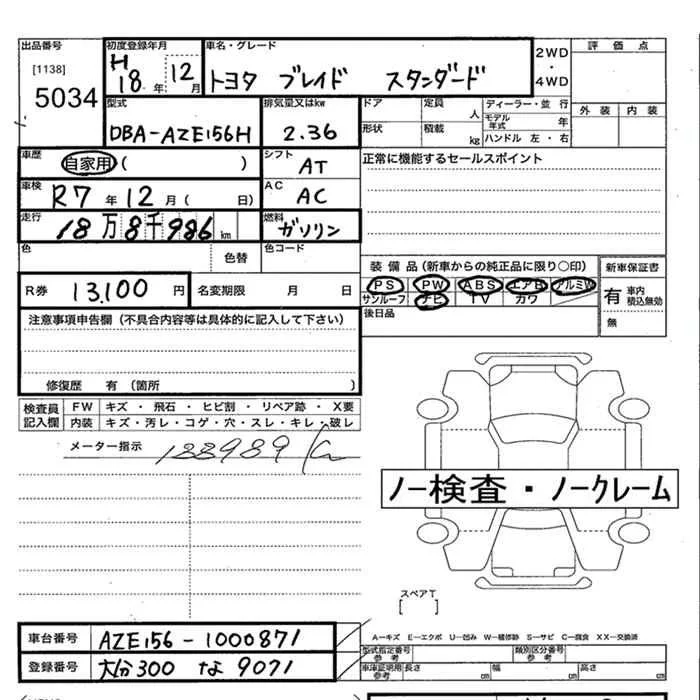 出品番号 初度登録年月 車名・グレード 2WD ・ 4WD 評価点
[1138] H 18年 12月 トヨタ ブレイド スタンダード
5034 外装 内装
型式 排気量又はkw ドア 定員 人 ディーラー・並行
DBA-AZE156H 2.36 形状 積載 kg モデル年式 年
ハンドル 左・右
車歴 自家用 ( ) シフト AT 正常に機能するセールスポイント
車検 R7年 12月 ( 日) AC AC
走行 18万8千986km 燃料 ガソリン
色 色替 色コード 装備品 (新車からの純正品に限り○印) 新車保証書
R券 13,100円 名変期限 月 日 PS PW ABS エアB アルミW 有 車内積込無効
サンルーフ ナビ TV カワ
後日品 無
注意事項申告欄 (不具合内容等は具体的に記入して下さい)
修復歴 有 (箇所 )
検査員記入欄 FW キズ・飛石・ヒビ割・リペア跡・X要
内装 キズ・汚レ・コゲ・穴・スレ・キレ・破レ
メーター指示 188989 Km
ノー検査・ノークレーム
スペアT
[ ]
車台番号 AZE156-1000871 A―キズ E―エクボ U―凹み W―補修跡 S―サビ C―腐食 XX―交換済
型式指定番号 参考 類別区分番号 参考
登録番号 大分300 な 9071 車庫証明用 参考 長さ cm 幅 cm 高さ cm